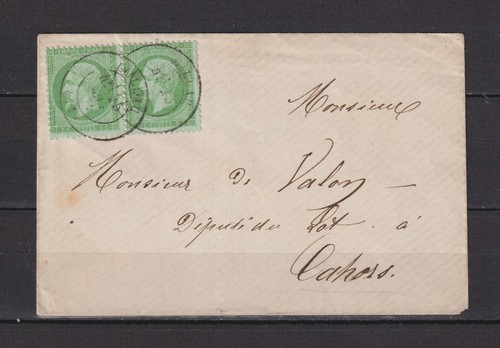 Monsieur
Monsieur de Valon
Député du Lot à
Cahors.